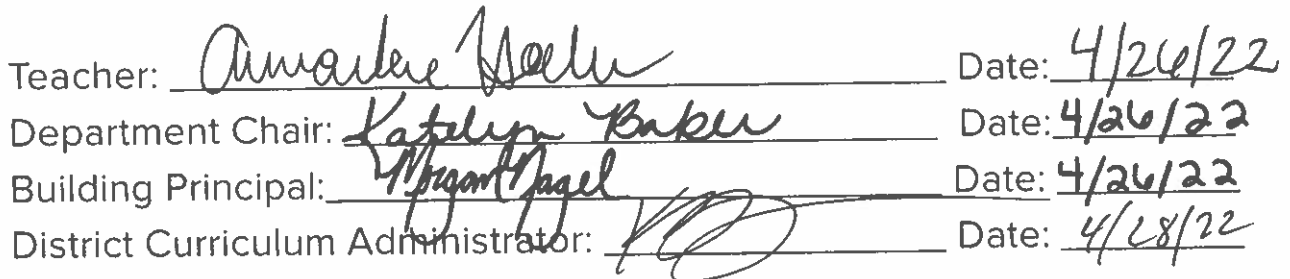 Teacher: Date: 4/26/22
Department Chair: Katelyn Baker Date: 4/26/22
Building Principal: Morgan Nagel Date: 4/26/22
District Curriculum Administrator: Date: 4/28/22